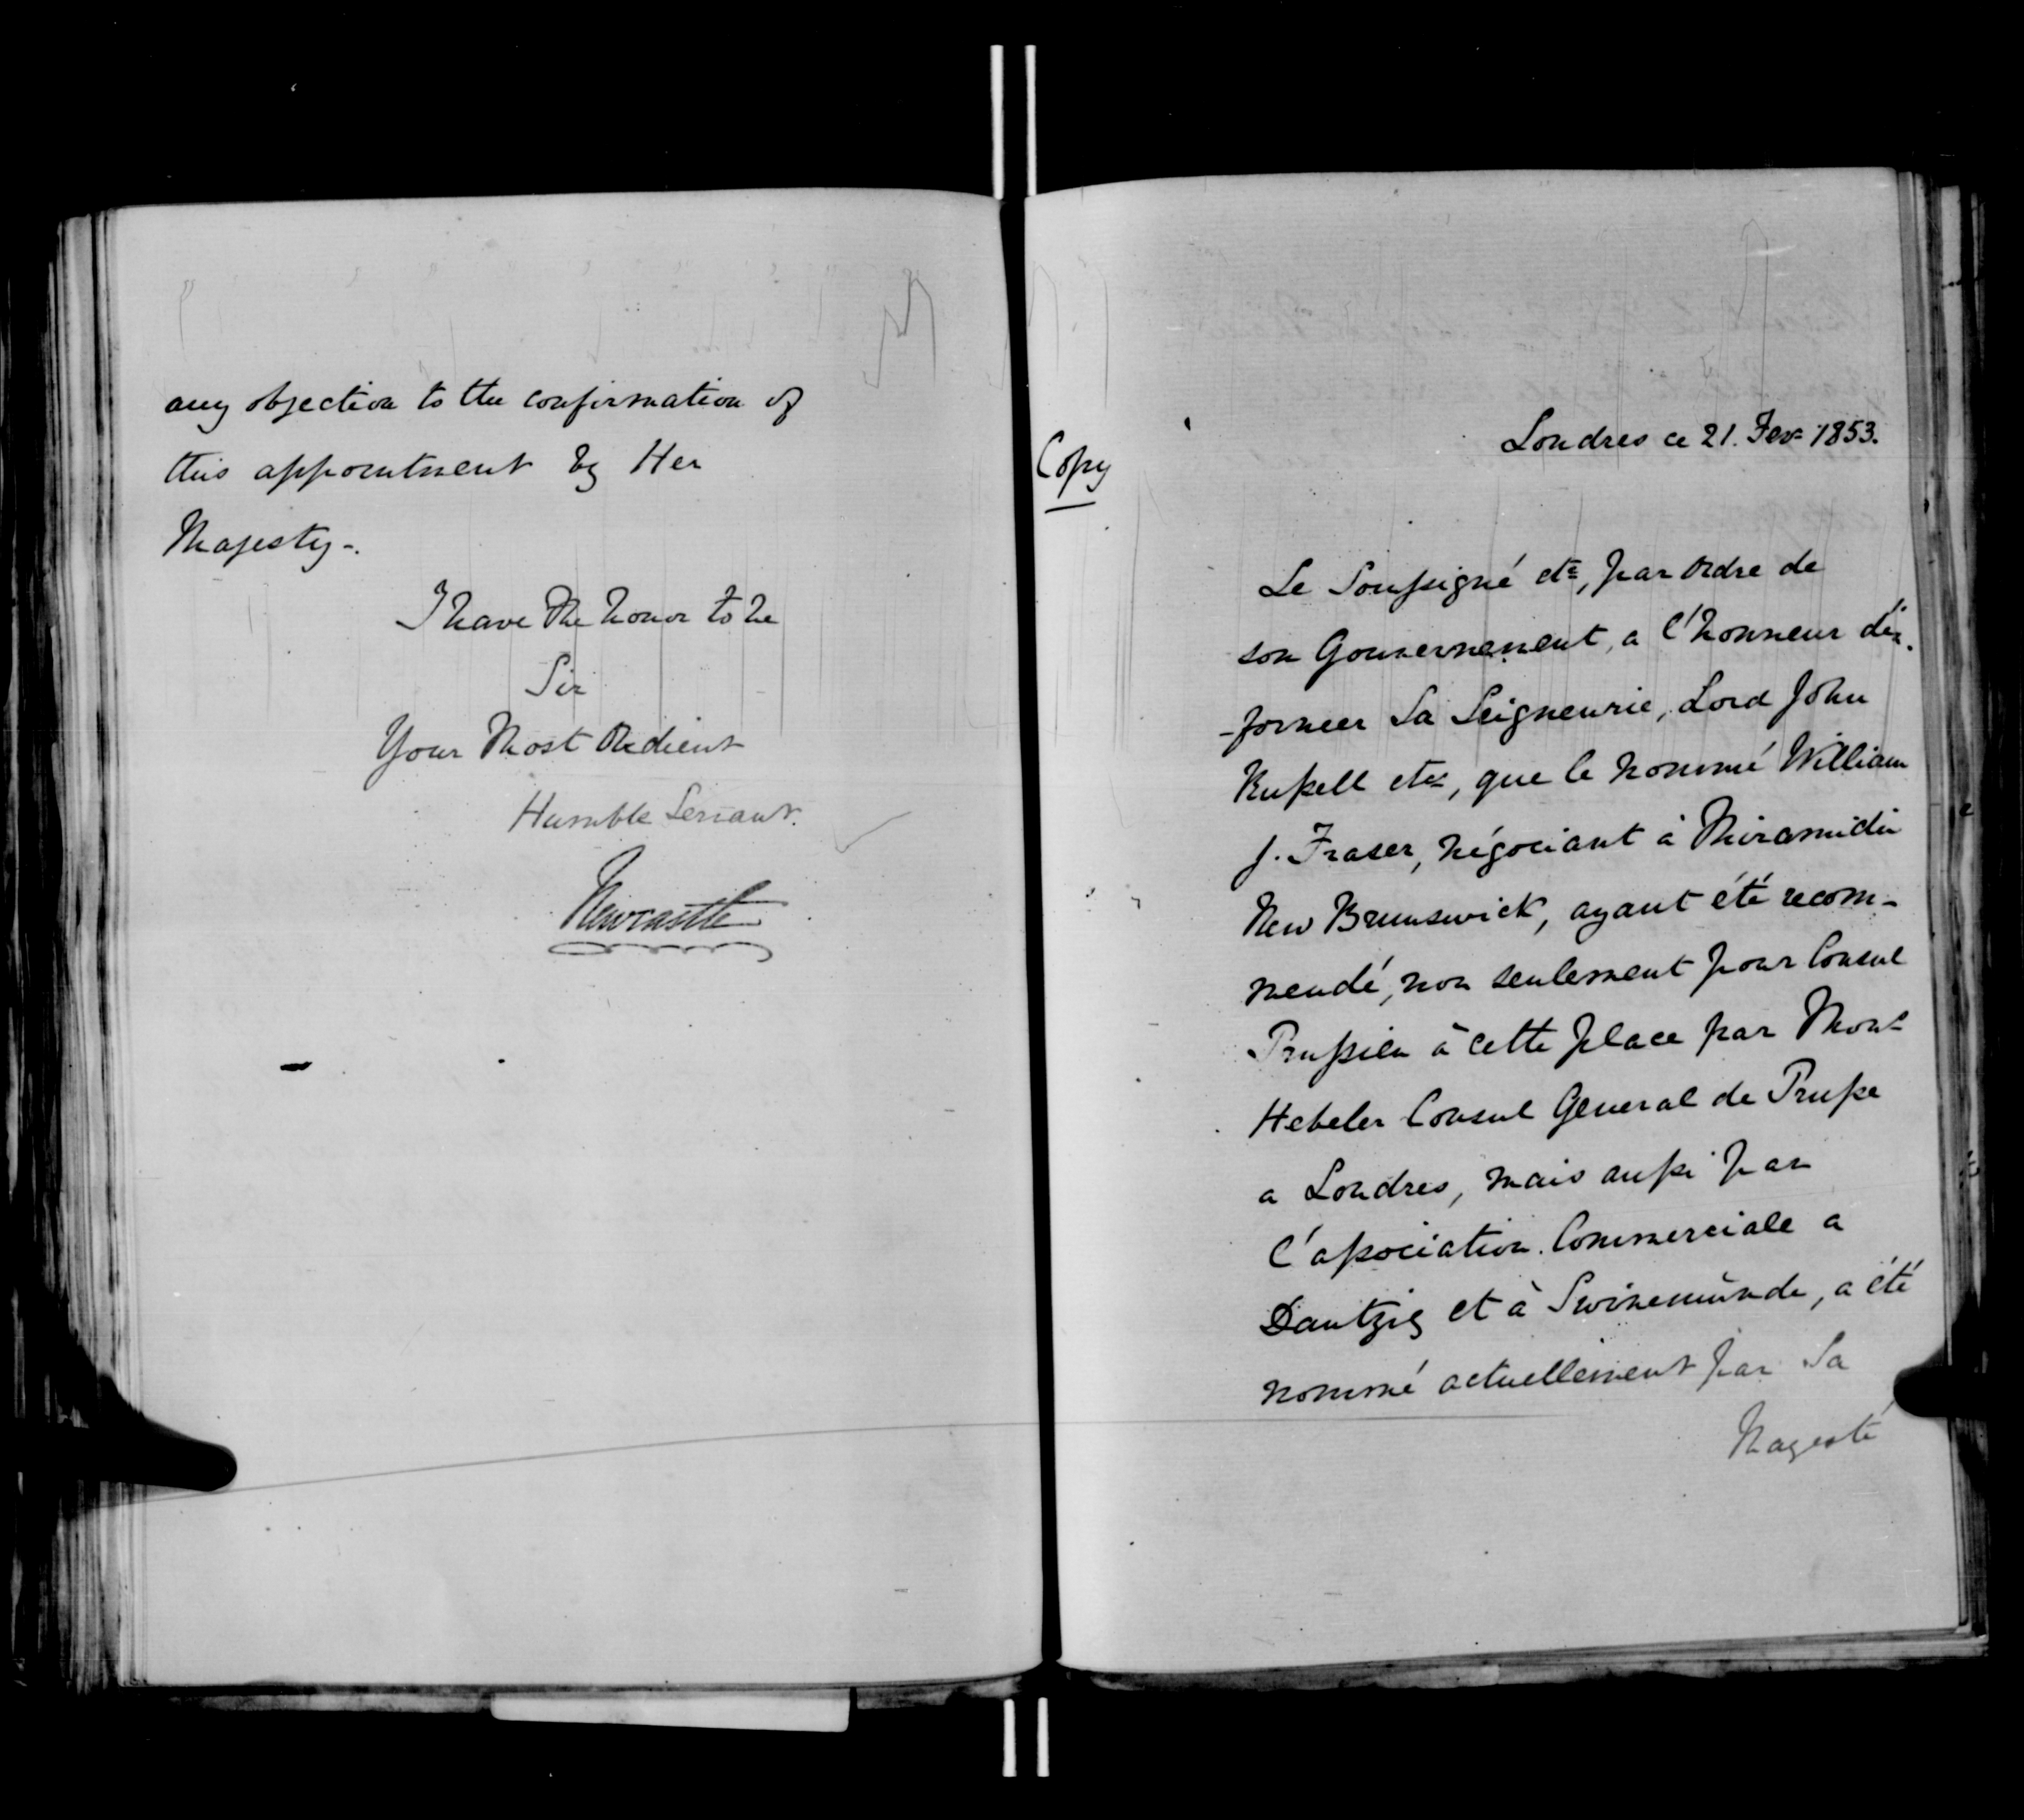 any objection to the confirmation of
this appointment by Her
Majesty-.
I have the honor to be
Sir
Your Most Obedient
Humble Servant.
Newcastle
Copy
Londres ce 21. Fevr 1853.
Le Soussigné etc, par ordre de
son Gouvernement, a l'honneur d'in-
-former Sa Seigneurie, Lord John
Russell etc, que le nommé William
J. Fraser, négociant à Miramichi
New Brunswick, ayant été recom-
mendé, non seulement pour Consul
Prussien à cette place par Monr
Hebeler Consul General de Prusse
a Londres, mais aussi par
l'association Commerciale a
Dantzig et à Swinemünde, a été
nommé actuellement par Sa
Magesté